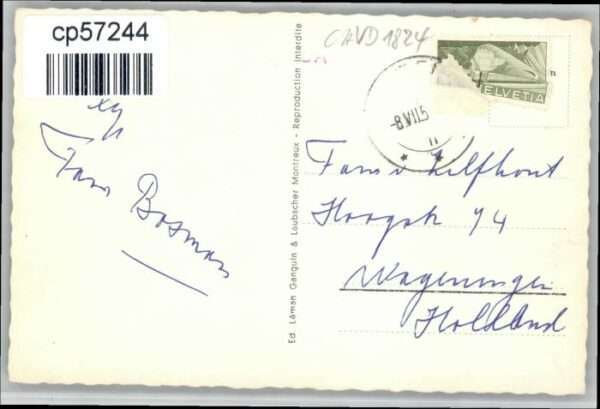 cp57244
CAVD 1824
HELVETIA
-8.VII.5
Fam. Bosman
Fam. v Kelfhout
Hoogstr 74
Wageningen
Holland
Ed. Láman Ganguin & Laubscher Montreux - Reproduction interdite